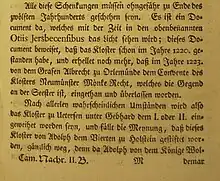 Alle diese Schenkungen müssen ohngefähr zu Ende des
zwölften Jahrhunderts geschehen seyn. Es ist ein Do-
cument da, welches mit der Zeit in den obenbenannten
Otiis Jersbecensibus das Licht sehen wird; dieses Do-
cument beweiset, daß das Kloster schon im Jahre 1220. ge-
standen habe, und erhellet noch mehr, daß im Jahre 1223.
von den Grafen Albrecht zu Orlemünde dem Convente des
Klosters Neumünster Mönke-Recht, welches die Gegend
an der Seester ist, eingethan und überlassen worden.
Nach allerley wahrscheinlichen Umständen wird also
das Kloster zu Uetersen unter Gebhard dem I. oder II. ein-
geweihet worden seyn, und fällt die Meynung, daß dieses
Kloster von Adolph dem Vierten zu Holstein gestiftet wor-
den, gänzlich weg, denn da Adolph von dem Könige Wol-
Cam. Nachr. II. B. M demar